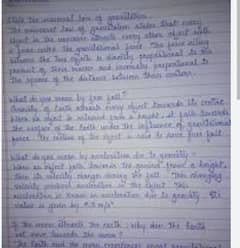 State the universal law of gravitation.
The universal law of gravitation states that every
object in the universe attracts every other object with
a force called the gravitational force. The force acting
between the two objects is directly proportional to the
product of their masses and inversely proportional to
the square of the distance between their centres.
What do you mean by free fall?
Gravity of Earth attracts every object towards its centre.
When an object is released from a height, it falls towards
the surface of the Earth under the influence of gravitational
force. The motion of the object is said to have free fall.
What do you mean by acceleration due to gravity
When an object falls from a height,
its velocity changes during the fall. This changing
velocity produces acceleration in the object. This
acceleration is known as acceleration due to gravity. Its
value is given by 9.8 m/s²
the Earth, why does the Earth
not move towards the moon?
The Earth and the moon experience